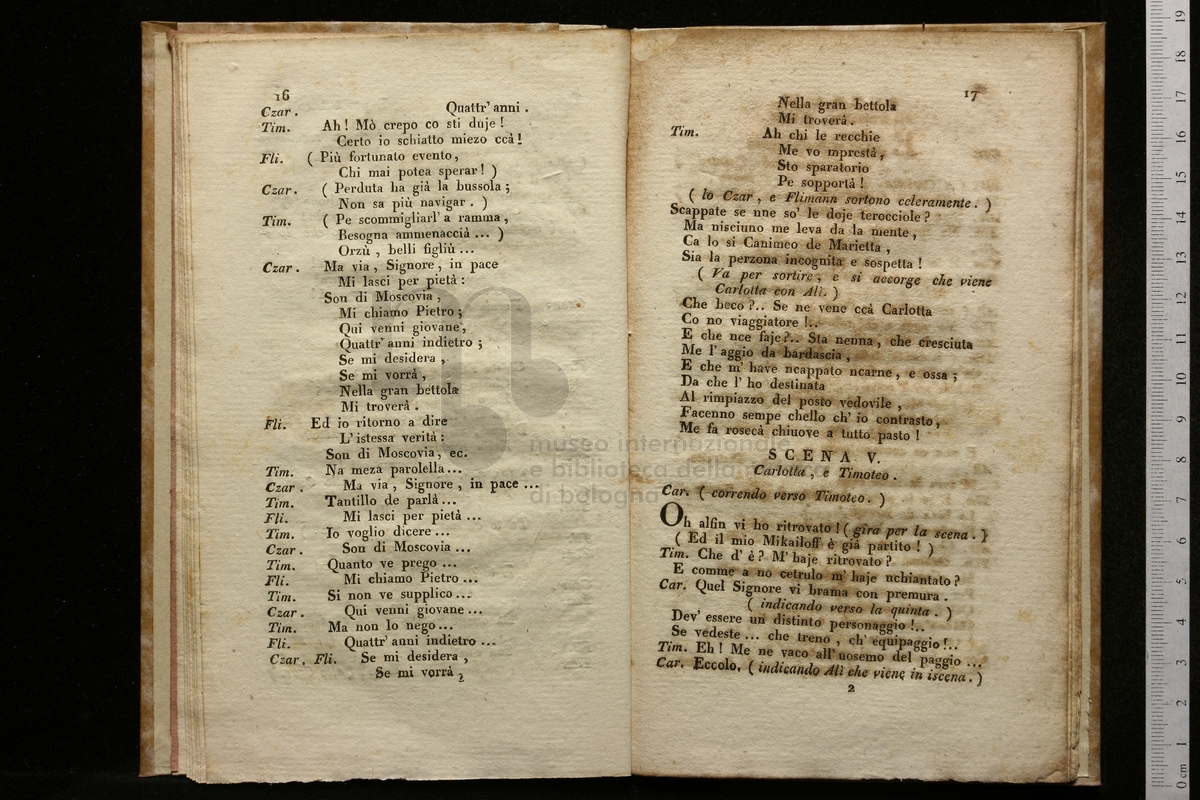 16
Czar. Quattr' anni .
Tim. Ah ! Mò crepo co sti duje !
Certo io schiatto miezo ccà !
Fli. ( Più fortunato evento,
Chi mai potea sperar ! )
Czar. ( Perduta ha già la bussola ;
Non sa più navigar . )
Tim. ( Pe scommigliarl' a ramma ,
Besogna ammenaccià ... )
Orzù , belli figliù ...
Czar. Ma via , Signore , in pace
Mi lasci per pietà :
Son di Moscovia ,
Mi chiamo Pietro ;
Qui venni giovane ,
Quattr' anni indietro ;
Se mi desidera ,
Se mi vorrà ,
Nella gran bettola
Mi troverà .
Fli. Ed io ritorno a dire
L' istessa verità :
Son di Moscovia, ec.
Tim. Na meza parolella ...
Czar . Ma via , Signore , in pace ...
Tim. Tantillo de parlà ...
Fli. Mi lasci per pietà ...
Tim. Io voglio dicere ...
Czar. Son di Moscovia ...
Tim. Quanto ve prego ...
Fli. Mi chiamo Pietro ...
Tim. Si non ve supplico ...
Czar . Qui venni giovane ...
Tim. Ma non lo nego ...
Fli. Quattr' anni indietro ...
Czar, Fli. Se mi desidera ,
Se mi vorrà ,
17
Nella gran bettola
Mi troverà .
Tim. Ah chi le recchie
Me vo mprestà ,
Sto sparatorio
Pe sopportà !
( lo Czar , e Flimann sortono celeramente . )
Scappate se nne so' le doje terocciole ?
Ma nisciuno me leva da la mente ,
Ca lo si Canimeo de Marietta ,
Sia la perzona incognita e sospetta !
( Va per sortire , e si accorge che viene
Carlotta con Alì. )
Che beco ?.. Se ne vene ccà Carlotta
Co no viaggiatore !..
E che nce faje ?.. Sta nenna , che cresciuta
Me l' aggio da bardascia ,
E che m' have ncappato ncarne , e ossa ;
Da che l' ho destinata
Al rimpiazzo del posto vedovile ,
Facenno sempe chello ch' io contrasto ,
Me fa rosecà chiuove a tutto pasto !
SCENA V.
Carlotta , e Timoteo .
Car. ( correndo verso Timoteo . )
Oh alfin vi ho ritrovato ! ( gira per la scena . )
( Ed il mio Mikailoff è già partito ! )
Tim. Che d' è ? M' haje ritrovato ?
E comme a no cetrulo m' haje nchiantato ?
Car. Quel Signore vi brama con premura .
( indicando verso la quinta . )
Dev' essere un distinto personaggio !..
Se vedeste ... che treno , ch' equipaggio !..
Tim. Eh ! Me ne vaco all' uosemo del paggio ...
Car. Eccolo. ( indicando Alì che viene in iscena . )
2
museo internazionale
e biblioteca della musica
di bologna
0 cm 1 2 3 4 5 6 7 8 9 10 11 12 13 14 15 16 17 18 19